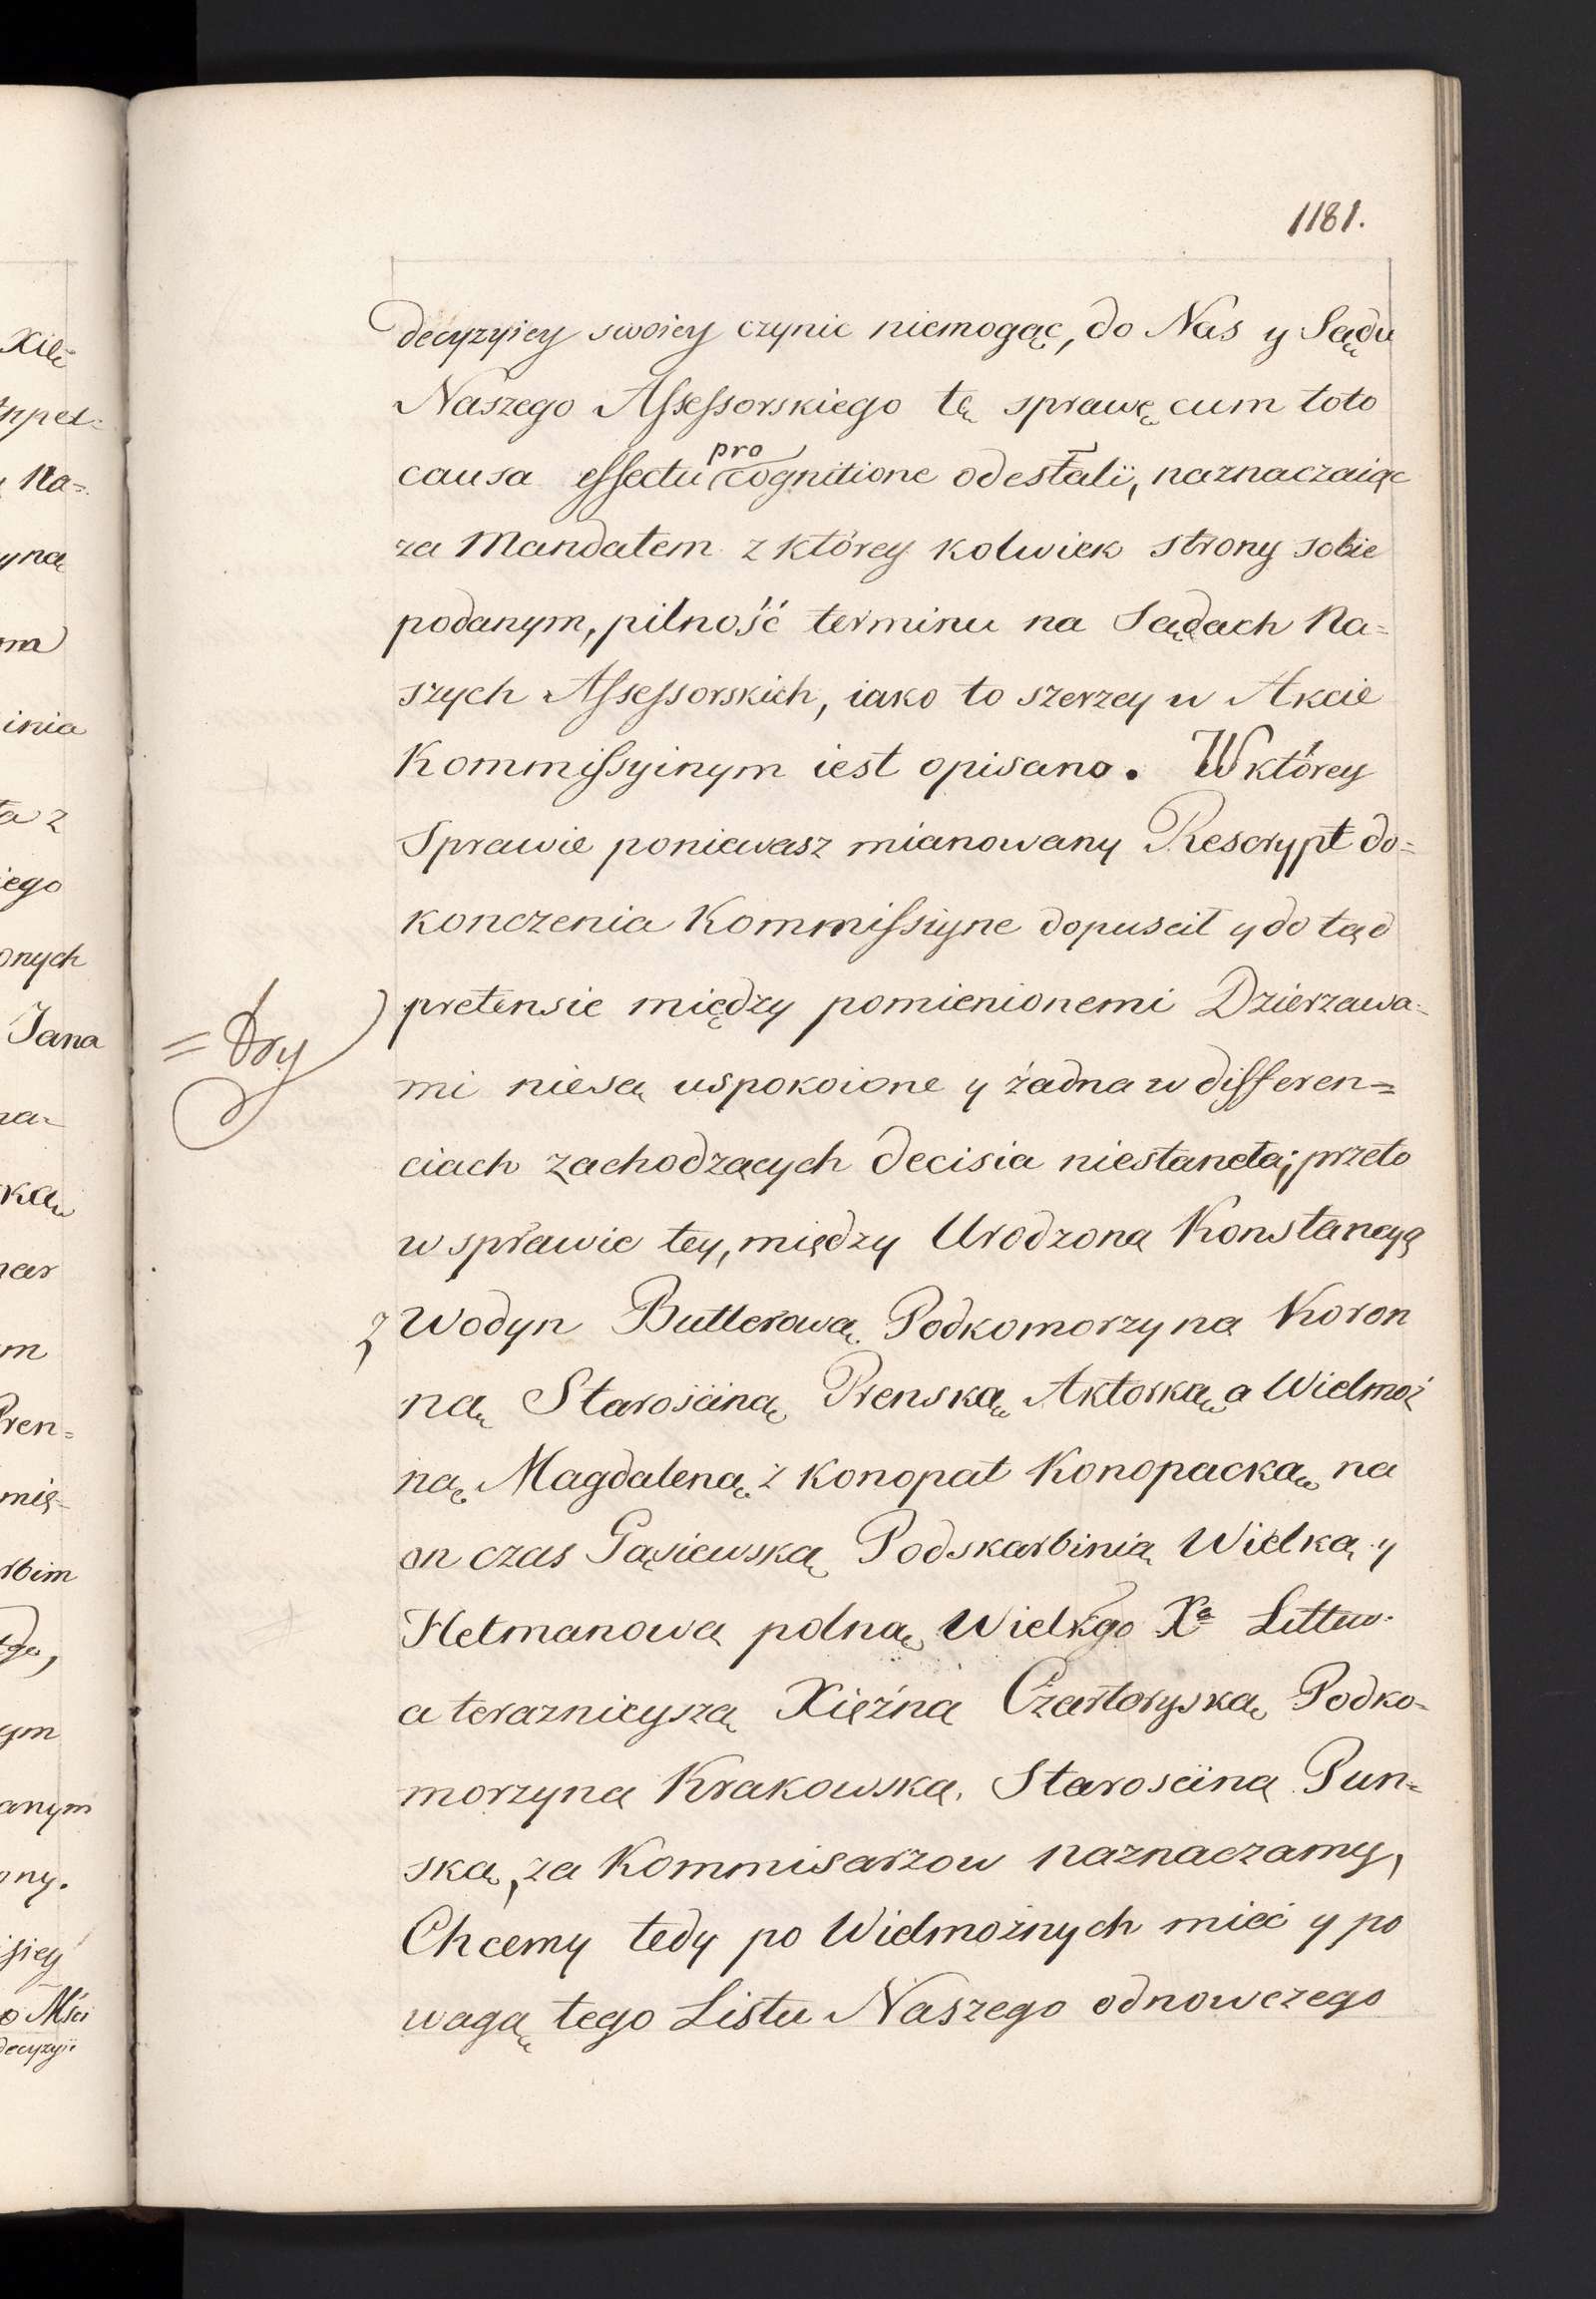 1181.
decyzyiey swoiey czynic niemogąc, do Nas y Sądu
Naszego Assessorskiego tę sprawę cum toto
causa effectu pro cognitione odesłali, naznaczaiąc
za Mandatem z którey kolwiek strony sobie
podanym, pilność terminu na Sądach Na=
szych Assessorskich, iako to szerzey w Akcie
Kommissyinym iest opisano. W którey
Sprawie poniewasz mianowany Rescrypt do=
konczenia Kommissiyne dopuscił y do tąd
pretensie między pomienionemi Dzierzawa=
= dry
mi niesą uspokoione y żadna w differen=
ciach zachodzących decisia niestaneła; przeto
w sprawie tey, między Urodzoną Konstancyą
z Wodyn Butlerową Podkomorzyną Koron
ną Starościną Prenską Aktorką a Wielmoż
ną Magdaleną z Konopat Konopacką na
on czas Gąsiewską Podskarbinią Wielką y
Hetmanową polną Wielkgo Xa Littew.
a teraznieyszą Xiężną Czartoryską Podko=
morzyną Krakowską, Starościną Pun=
ską, za Kommisarzow naznaczamy,
Chcemy tedy po Wielmożnych mieć y po
wagą tego Listu Naszego odnowczego